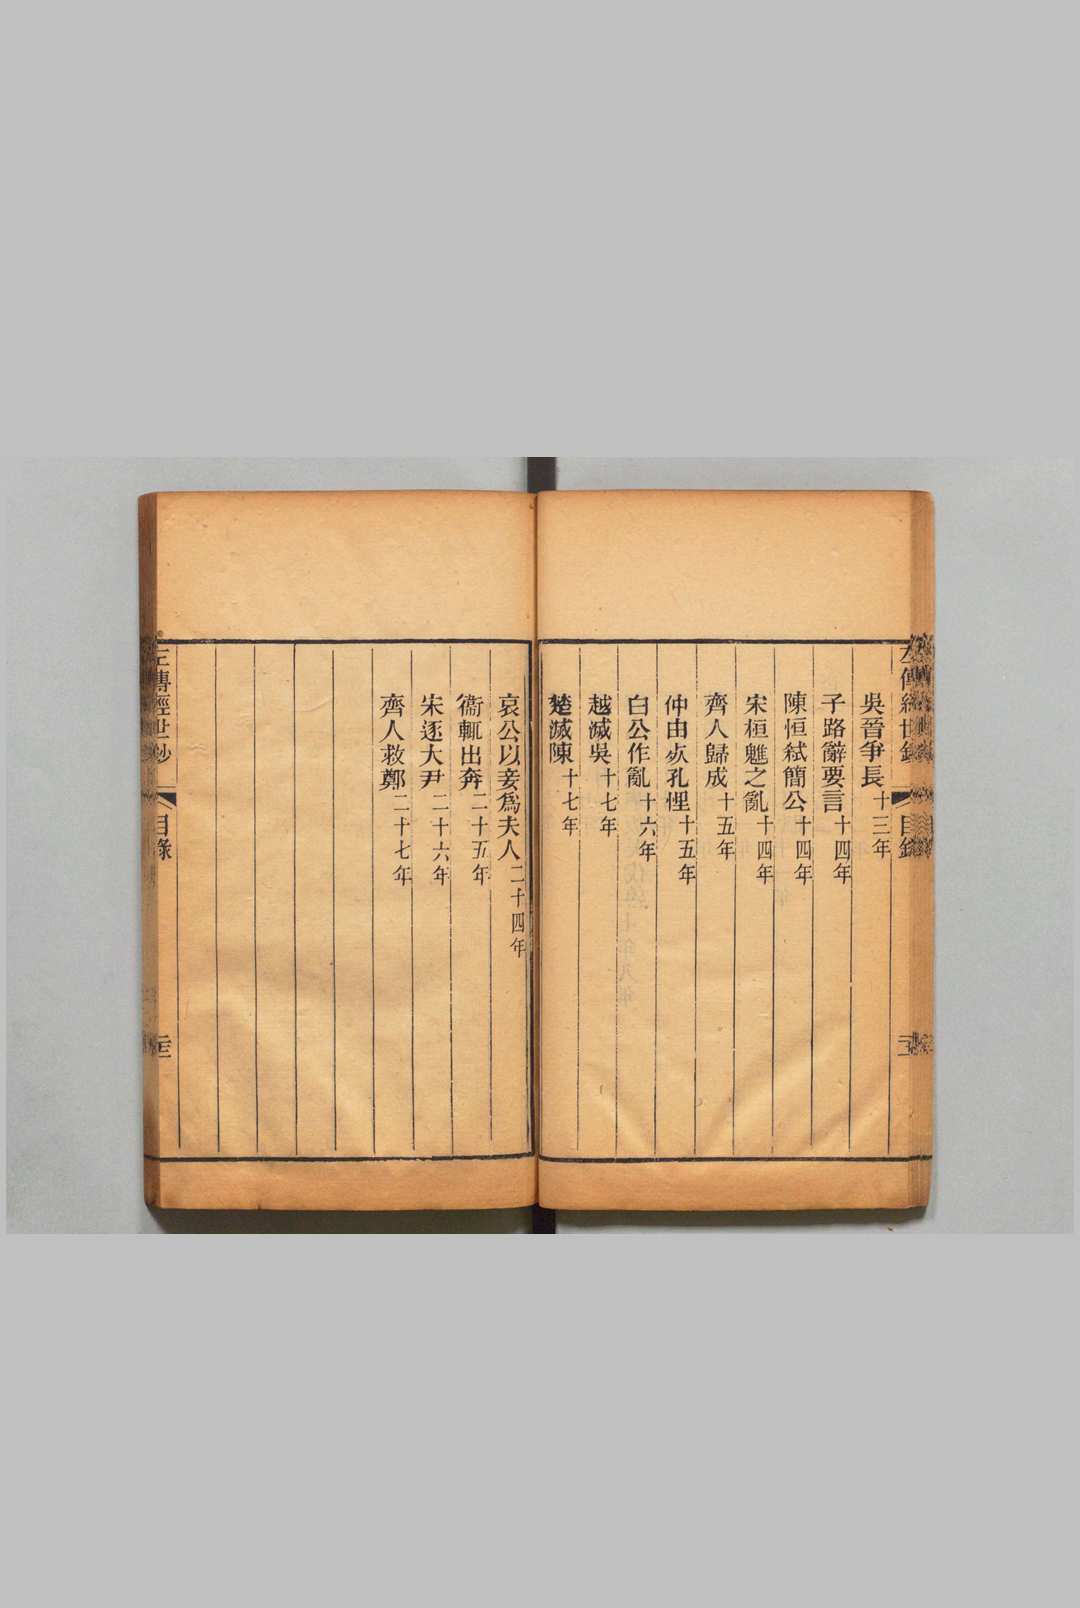 吳晉爭長十三年
子路辭要言十四年
陳恒弒簡公十四年
宋桓魋之亂十四年
齊人歸成十五年
仲由死孔悝十五年
白公作亂十六年
越滅吳十七年
楚滅陳十七年
哀公以妾爲夫人二十四年
衞輒出奔二十五年
宋逐大尹二十六年
齊人救鄭二十七年
左傳經世鈔
目錄